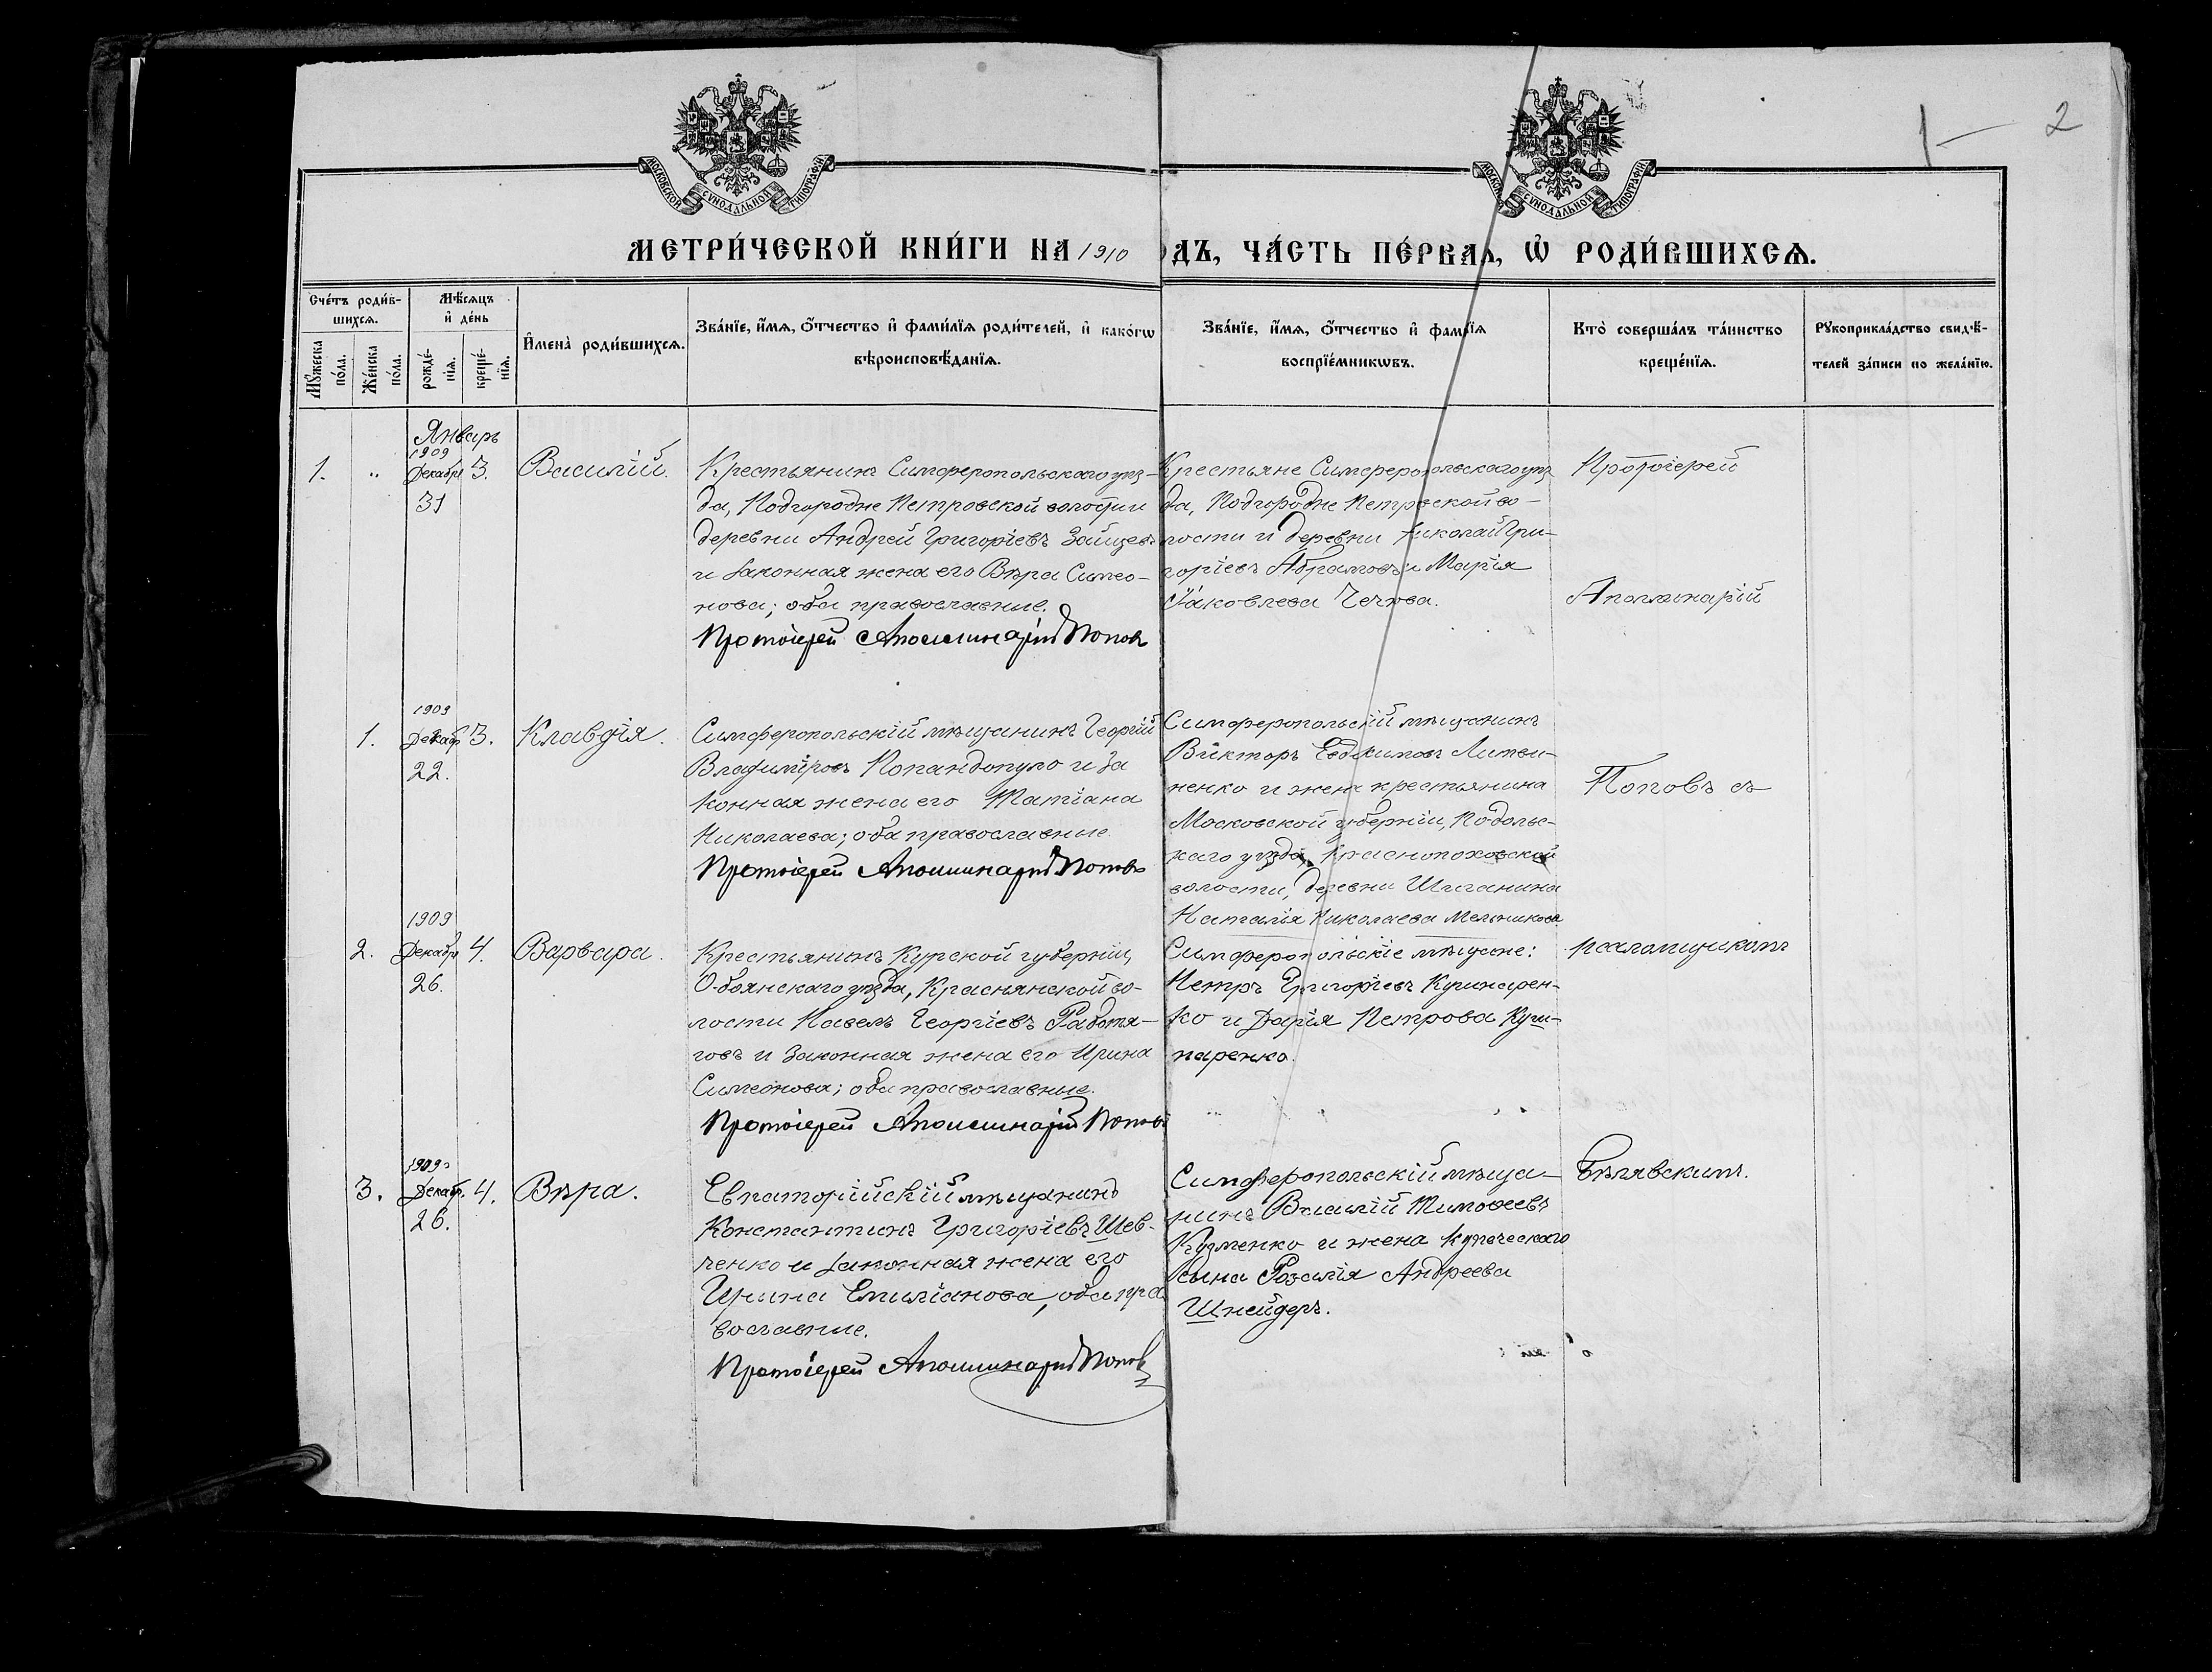 МОСКОВСКОЙ СУНОДАЛЬНОЙ ТИПОГРАФІИ
МОСКОВ СУНОДАЛЬНОЙ ТИПОГРАФІИ
1 — 2
МЕТРИ́ЧЕСКОЙ КНИ́ГИ НА 1910
ОДЪ, ЧА́СТЬ ПЕ́РВАѦ, Ѡ҆ РОДИ́ВШИХСѦ.
Сче́тъ роди́в-
шихсѧ.
Мꙋ́жеска
по́ла.
Же́нска
по́ла.
Мѣ́сѧцъ
и҆ де́нь
рожде́-
нїѧ.
креще́-
нїѧ.
И҆мена̀ роди́вшихсѧ.
Зва́нїе, и҆́мѧ, ѻ҆́тчество и҆ фами́лїѧ роди́телей, и҆ како́гѡ
вѣроисповѣ́данїѧ.
Зва́нїе, и҆́мѧ, ѻ҆́тчество и҆ фам́лїѧ
воспрїе́мникѡвъ.
Кто̀ соверша́лъ та́инство
креще́нїѧ.
Рꙋкоприкла́дство свидѣ́-
телей за́писи по жела́нїю.
Январь
1909
1. „ Декабр 3. Василій.
31
Крестьянинъ Симферопольскаго уѣз-
да, Подгородне Петровской волости и
деревни Андрей Григоріевъ Зайцевъ
и законная жена его Вѣра Симео-
нова; оба православные.
Протоіерей Аполлинарій Поповъ
Крестьяне Симферопольскаго уѣз
да, Подгородне Петровской во-
лости и деревни Николай Гри-
горіевъ Абрамовъ и Марія
Іаковлева Чечова.
Протоіерей
Аполлинарій
1909
1. Декабр 3. Клавдія.
22.
Симферопольскій мѣщанинъ Георгій
Владиміровъ Попандопуло и за
конная жена его Татіана
Николаева; оба православные
Протоіерей Аполлинарій Поповъ
Симферопольскій мѣщанинъ
Викторъ Евдокимовъ Литви-
ненко и жена крестьянина
Московской губерніи, Подоль-
скаго уѣзда, Краснопаховской
волости, деревни
Наталія Николаева Мельникова
Поповъ съ
1909
2. Декабр 4. Варвара.
26.
Крестьянинъ Курской губерніи,
Обоянскаго уѣзда, Краснянской во-
лости Павелъ Георгіевъ Работя-
говъ и законная жена его Ирина
Симеонова; оба православные.
Протоіерей Аполлинарій Поповъ
Симферопольскіе мѣщане:
Петръ Григоріевъ Кушнарен-
ко и Дарія Петрова Куш-
наренко.
псаломщикомъ
1909
3. Декабр. 4. Вѣра.
26.
Евпаторійскій мѣщанинъ
Константинъ Григоріевъ Шев-
ченко и законная жена его
Ирина Емиліанова, оба пра
вославные.
Протоіерей Аполлинарій Поповъ
Симферопольскій мѣща-
нинъ Василій Тимофеевъ
Кузменко и жена купеческаго
сына Розалія Андреева
Шнейдеръ.
Бѣлявскимъ.